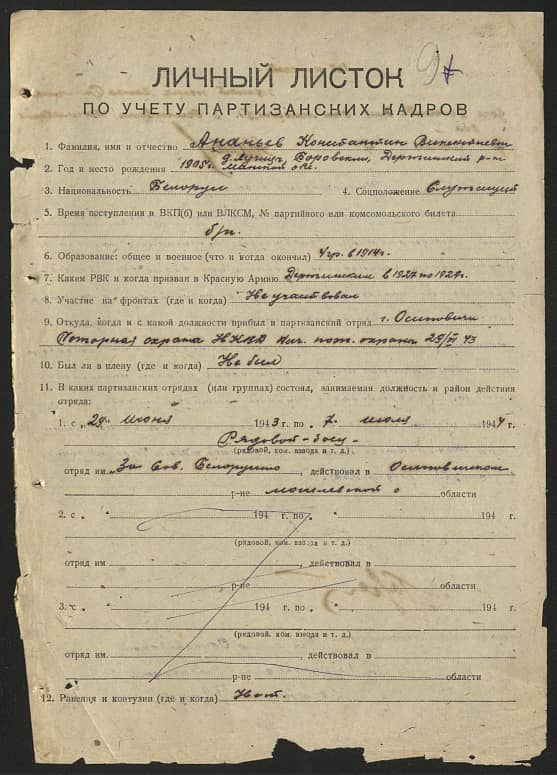 ЛИЧНЫЙ ЛИСТОК
ПО УЧЕТУ ПАРТИЗАНСКИХ КАДРОВ
1. Фамилия, имя и отчество Ананьев Константин
д. Лучицы, Боровского, Дзержинский р-н
2. Год и место рождения 1905 г. Минской обл.
3. Национальность Белорус 4. Соцположение Служащий
5. Время поступления в ВКП(б) или ВЛКСМ, № партийного или комсомольского билета
б/п.
6. Образование: общее и военное (что и когда окончил) 4 гр. в 1914 г.
7. Каким РВК и когда призван в Красную Армию Дзержинским в 1927 по 1929 г.
8. Участие на фронтах (где и когда) Не участвовал
9. Откуда, когда и с какой должности прибыл в партизанский отряд г. Осиповичи
Пожарная охрана НКВД Нач. пож. охраны 29/VI 43
10. Был ли в плену (где и когда) Не был
11. В каких партизанских отрядах (или группах) состоял, занимаемая должность и район действия
отряда:
1. с „29" июня 1943 г. по „7" июля 1944 г.
Рядовой-боец
(рядовой, ком. взвода и т. д.)
отряд им. За Сов. Белоруссию, действовал в Осиповичском
р-не могилевской о области
2. с „ 194 г. по „ 194 г.
(рядовой, ком. взвода и т. д.)
отряд им. , действовал в
р-не области
3. с „ 194 г. по „ 194 г.
(рядовой, ком. взвода и т. д.)
отряд им. , действовал в
р-не области
12. Ранения и контузии (где и когда) Нет.